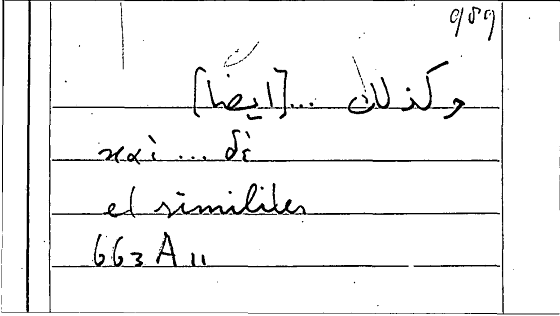 959
وكذلك ... [ايضا]
καὶ ... δὲ
et similiter
663 A 11